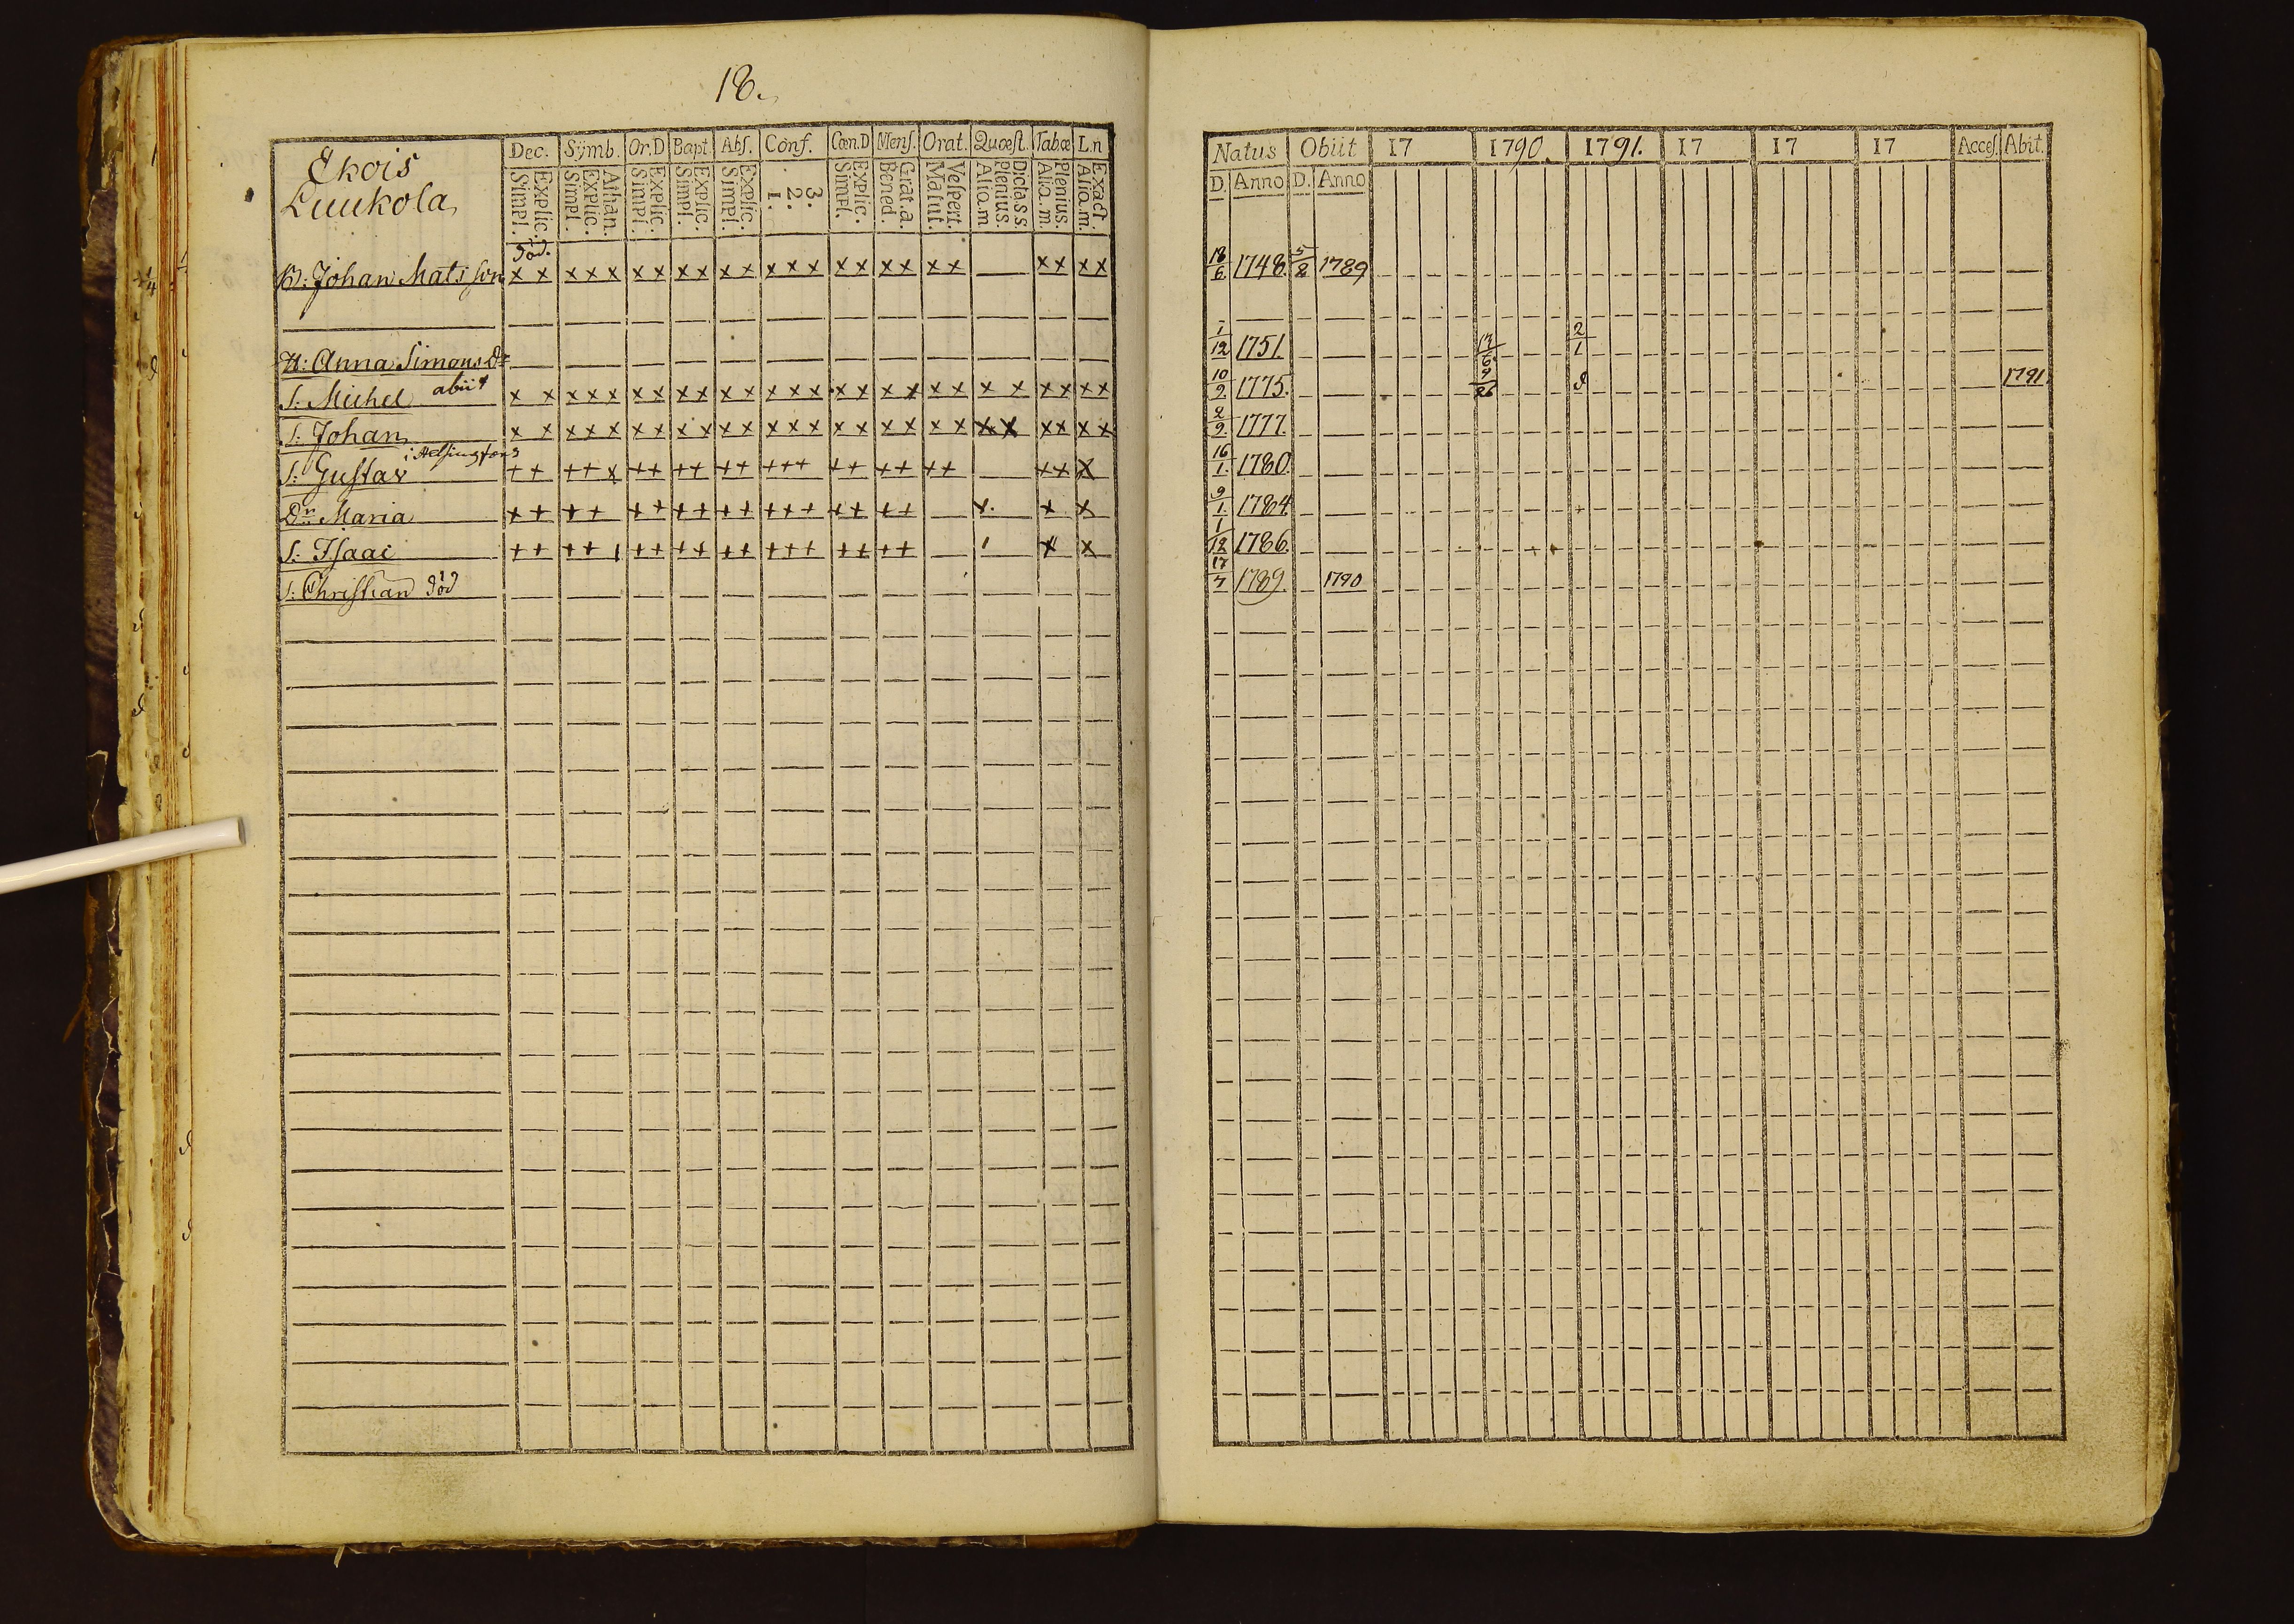 18.
Ekois
Luukola
Dec. Symb. Or.D Bapt. Abs. Conf. Cœn.D Mens. Orat. Quæst. Tabæ L.n
Explic. Simpl. Athan. Explic. Simpl. Explic. Simpl. Explic. Simpl. Explic. Simpl. 3. 2. 1. Explic. Simpl. Grat.a. Bened. Vespert. Matut. Dicta s.s. Plenius. Aliq.m Plenius. Aliq.m. Exact. Aliq.m.
Natus Obiit 17 1790. 1791. 17 17 17 Acces. Abit.
D. Anno D. Anno
död.
B: Johan Matsson x x x x x x x x x x x x x x x x x x x x x x x 18/6 1748. 5/2 1789
H: Anna Simonsdr 1/12 1751. 2/1
S: Michel abiit x x x x x x x x x x x x x x x x x x x x x x x x x 10/9. 1775. 1791.
S: Johan x x x x x x x x x x x x x x x x x x x x x x x x x 2/9. 1777.
S: Gustav i Helsingfors + + + + x + + + + + + + + + + + + + + + x x x 16/1. 1780.
Dr Maria x + + + + + + + + + + + + + + + + x. x x 9/1. 1784.
S: Isaac + + + + 1 + + + + + + + + + + + + + x x 1/12 1786.
S: Christian död 17/7 1789. 1790